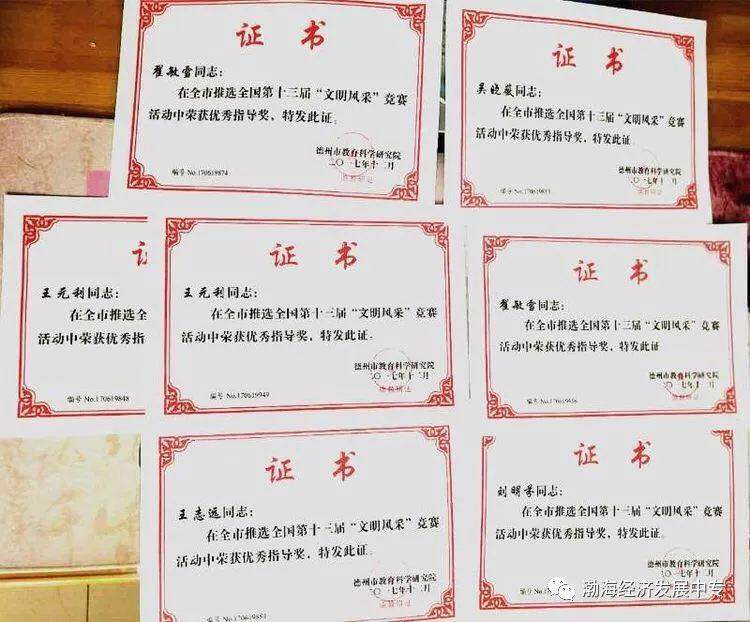 证书
翟敏雪同志：
在全市推选全国第十三届“文明风采”竞赛
活动中荣获优秀指导奖，特发此证。
德州市教育科学研究院
二〇一七年十二月
编号 No.170619874
证书
吴晓薇同志：
在全市推选全国第十三届“文明风采”竞赛
活动中荣获优秀指导奖，特发此证。
德州市教育科学研究院
二〇一七年十二月
证
王元利同志：
在全市推选
活动中荣获优秀指
编号 No.170619848
证书
王元利同志：
在全市推选全国第十三届“文明风采”竞赛
活动中荣获优秀指导奖，特发此证。
德州市教育科学研究院
二〇一七年十二月
编号 No.170619949
证书
翟敏雪同志：
在全市推选全国第十三届“文明风采”竞赛
活动中荣获优秀指导奖，特发此证
德州市教育科学研究院
二〇一七年十二月
证书
王志远同志：
在全市推选全国第十三届“文明风采”竞赛
活动中荣获优秀指导奖，特发此证。
德州市教育科学研究院
二〇一七年十二月
证书
刘明芬同志：
在全市推选全国第十三届“文明风采”竞赛
活动中荣获优秀指导奖，特发此证。
德州市教育科学研究院
二〇一七年十二月
渤海经济发展中专